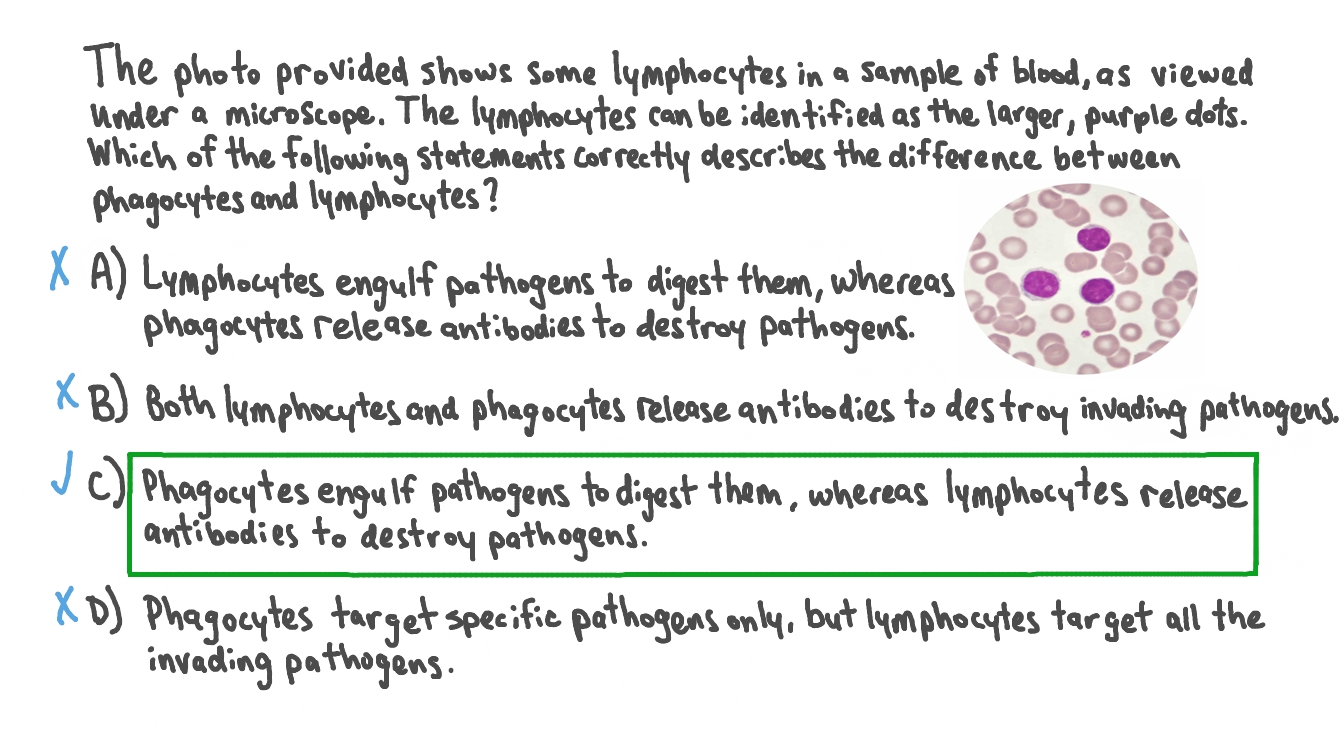 The photo provided shows some lymphocytes in a sample of blood, as viewed
under a microscope. The lymphocytes can be identified as the larger, purple dots.
Which of the following statements correctly describes the difference between
phagocytes and lymphocytes?
X A) Lymphocytes engulf pathogens to digest them, whereas
phagocytes release antibodies to destroy pathogens.
X B) Both lymphocytes and phagocytes release antibodies to destroy invading pathogens.
✓ C) Phagocytes engulf pathogens to digest them, whereas lymphocytes release
antibodies to destroy pathogens.
X D) Phagocytes target specific pathogens only, but lymphocytes target all the
invading pathogens.